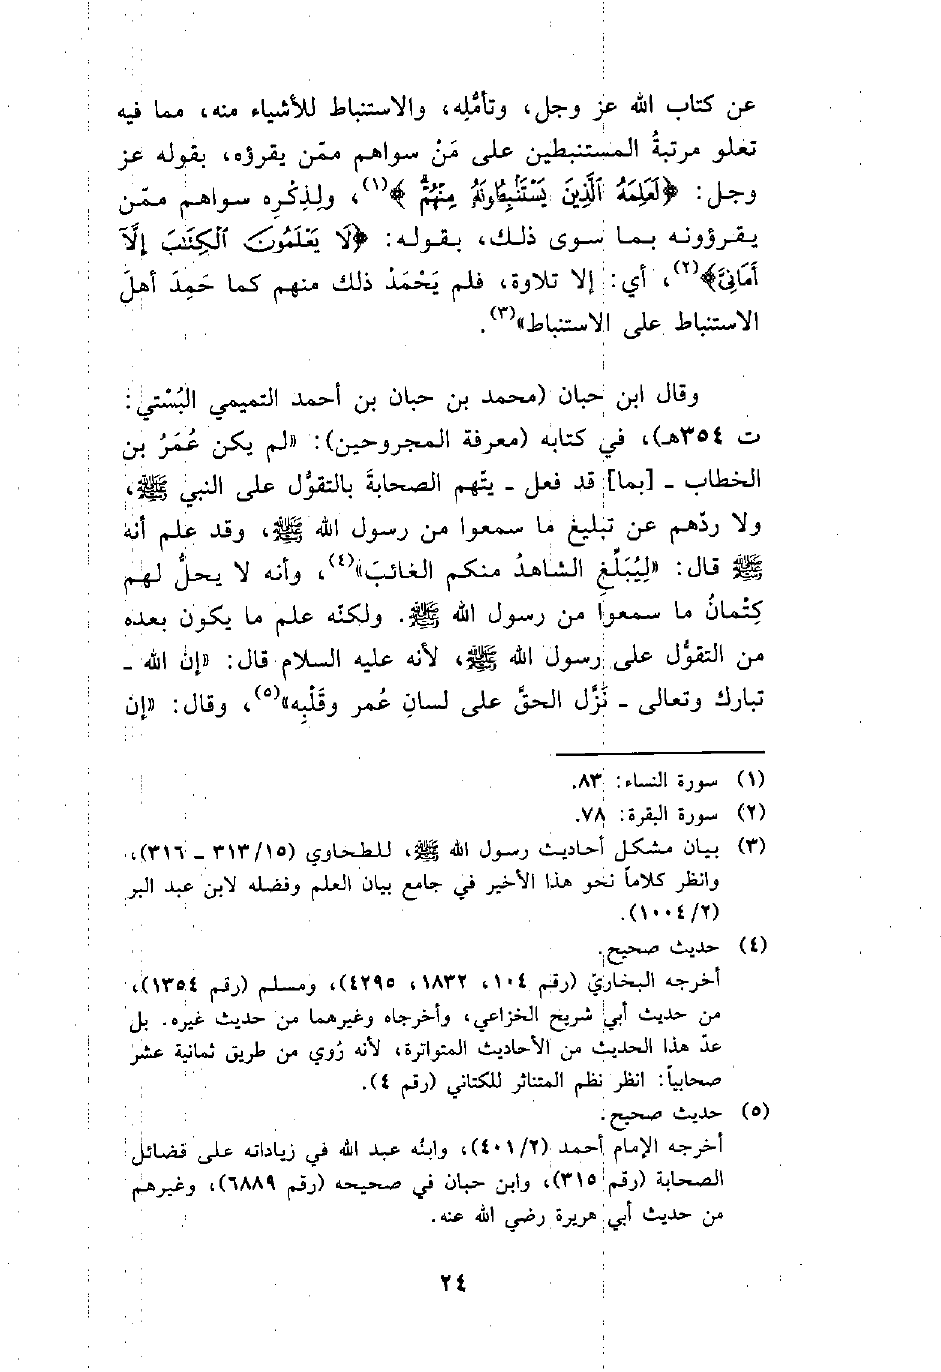 عن كتاب الله عز وجل، وتأمُّلِه، والاستنباط للأشياء منه، مما فيه
تعلو مرتبةُ المستنبطين على مَنْ سواهم ممّن يقرؤه، بقوله عز
وجل: ﴿لَعَلِمَهُ ٱلَّذِينَ يَسْتَنۢبِطُونَهُۥ مِنْهُمْ﴾(١)، ولِذِكْرِه سواهم ممّن
يقرؤونه بما سوى ذلك، بقوله: ﴿لَا يَعْلَمُونَ ٱلْكِتَٰبَ إِلَّآ
أَمَانِىَّ﴾(٢)، أي: إلا تلاوة، فلم يَحْمَدْ ذلك منهم كما حَمِدَ أهلَ
الاستنباط على الاستنباط»(٣).
وقال ابن حبان (محمد بن حبان بن أحمد التميمي البُسْتي:
ت ٣٥٤هـ)، في كتابه (معرفة المجروحين): «لم يكن عُمَرُ بن
الخطاب ـ [بما] قد فعل ـ يتّهم الصحابةَ بالتقوُّل على النبي ﷺ،
ولا ردّهم عن تبليغ ما سمعوا من رسول الله ﷺ، وقد علم أنه
ﷺ قال: «لِيُبَلِّغِ الشاهدُ منكم الغائبَ»(٤)، وأنه لا يحلُّ لهم
كِتْمانُ ما سمعوا من رسول الله ﷺ. ولكنّه علم ما يكون بعده
من التقوُّل على رسول الله ﷺ، لأنه عليه السلام قال: «إن الله ـ
تبارك وتعالى ـ نَزَّل الحقَّ على لسانِ عُمر وقَلْبِه»(٥)، وقال: «إن
(١) سورة النساء: ٨٣.
(٢) سورة البقرة: ٧٨.
(٣) بيان مشكل أحاديث رسول الله ﷺ، للطحاوي (١٥/ ٣١٣ ـ ٣١٦)،
وانظر كلاماً نحو هذا الأخير في جامع بيان العلم وفضله لابن عبد البر
(٢/ ١٠٠٤).
(٤) حديث صحيح.
أخرجه البخاري (رقم ١٠٤، ١٨٣٢، ٤٢٩٥)، ومسلم (رقم ١٣٥٤)،
من حديث أبي شريح الخزاعي، وأخرجاه وغيرهما من حديث غيره. بل
عدّ هذا الحديث من الأحاديث المتواترة، لأنه رُوي من طريق ثمانية عشر
صحابياً: انظر نظم المتناثر للكتاني (رقم ٤).
(٥) حديث صحيح.
أخرجه الإمام أحمد (٢/ ٤٠١)، وابنُه عبد الله في زياداته على فضائل
الصحابة (رقم ٣١٥)، وابن حبان في صحيحه (رقم ٦٨٨٩)، وغيرهم
من حديث أبي هريرة رضي الله عنه.
٢٤